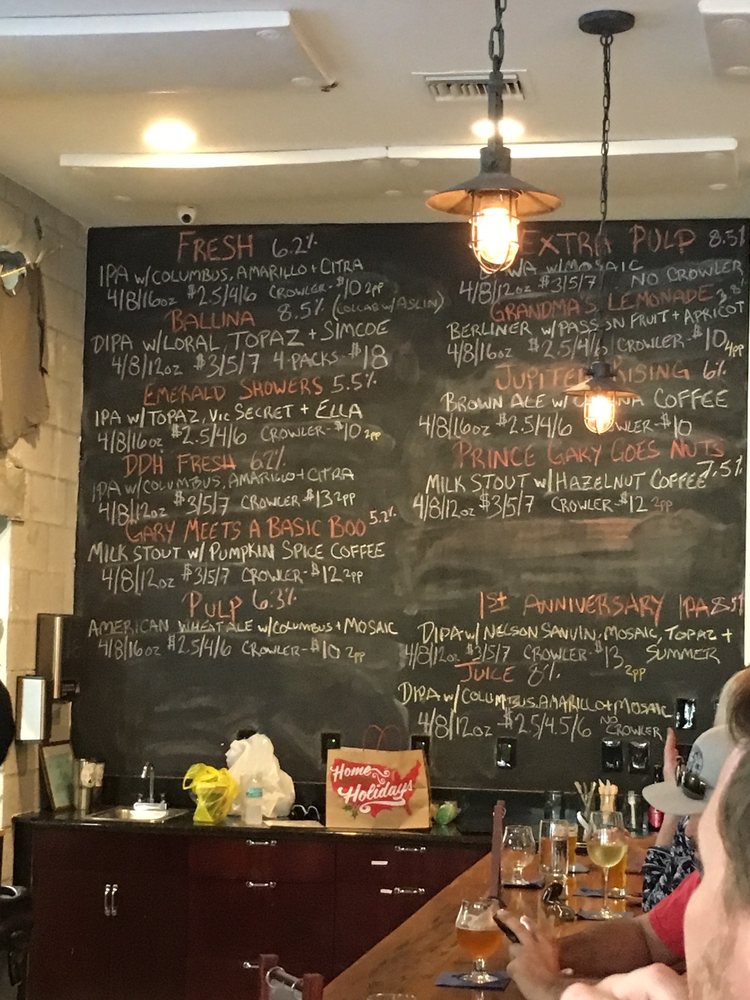 FRESH 6.2%
IPA W/COLUMBUS, AMARILLO + CITRA
4/8/16oz $2.5/4/6 CROWLER-$10 2pp
BALLINA 8.5% (COLLAB W/ASLIN)
DIPA W/LORAL, TOPAZ + SIMCOE
4/8/12oz $3/5/7 4-PACKS-$18
EMERALD SHOWERS 5.5%
IPA W/TOPAZ, VIC SECRET + ELLA
4/8/16oz $2.5/4/6 CROWLER-$10 2pp
DDH FRESH 6.2%
IPA W/COLUMBUS, AMARILLO + CITRA
4/8/12oz $3/5/7 CROWLER-$13 2pp
GARY MEETS A BASIC BOO 5.2%
MILK STOUT W/ PUMPKIN SPICE COFFEE
4/8/12oz $3/5/7 CROWLER-$12 2pp
PULP 6.3%
AMERICAN WHEAT ALE W/COLUMBUS + MOSAIC
4/8/16oz $2.5/4/6 CROWLER-$10 2pp
EXTRA PULP 8.5%
W/MOSAIC
4/8/12oz $3/5/7 NO CROWLER
GRANDMA'S LEMONADE 3.8%
BERLINER W/PASSION FRUIT + APRICOT
4/8/16oz $2.5/4/6 CROWLER-$10 4pp
JUPITER RISING 6%
BROWN ALE W/ COFFEE
4/8/16oz $2.5/4/6 CROWLER-$10
PRINCE GARY GOES NUTS
MILK STOUT W/HAZELNUT COFFEE 7.5%
4/8/12oz $3/5/7 CROWLER-$12 2pp
1ST ANNIVERSARY IPA 8.5%
DIPA W/NELSON SAUVIN, MOSAIC, TOPAZ +
4/8/12oz $3/5/7 CROWLER-$13 2pp SUMMER
JUICE 8%
DIPA W/COLUMBUS, AMARILLO + MOSAIC
4/8/12oz-$2.5/4.5/6 NO CROWLER
Home
for the
Holidays